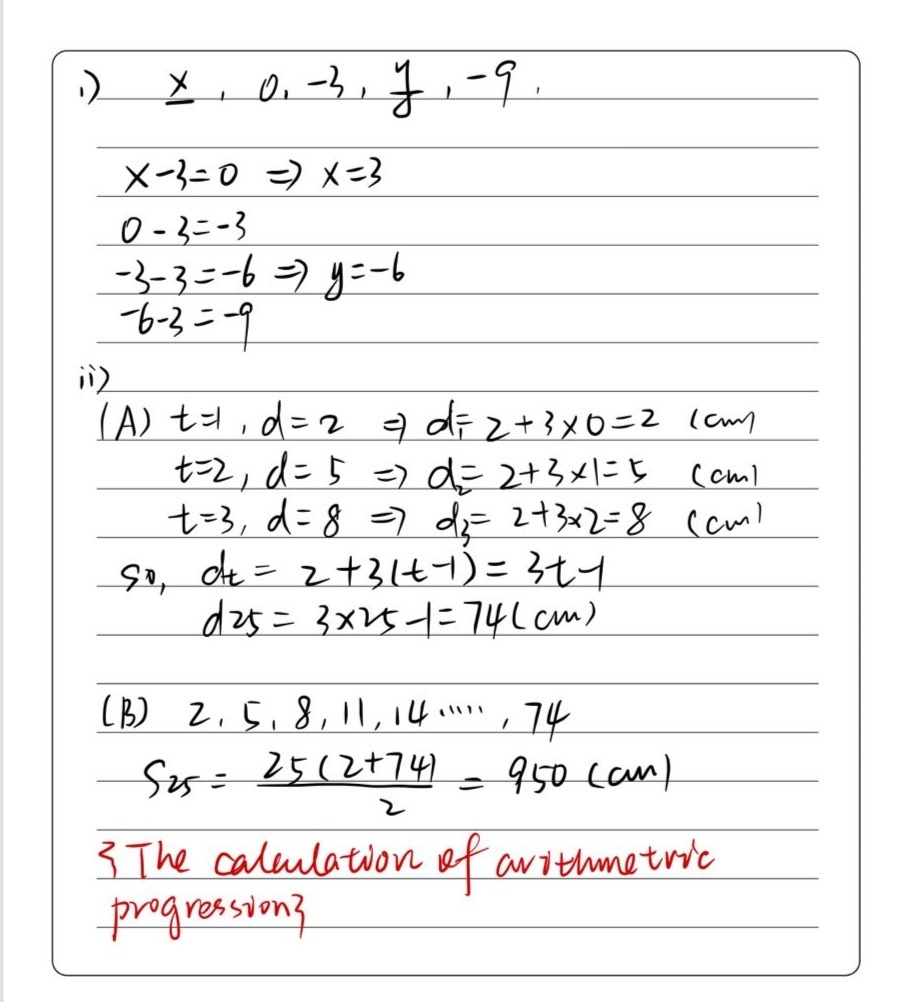 i) x, 0, -3, y, -9.
x-3=0 ⇒ x=3
0-3=-3
-3-3=-6 ⇒ y=-6
-6-3=-9
ii)
(A) t=1, d=2 ⇒ d₁=2+3×0=2 (cm)
t=2, d=5 ⇒ d₂=2+3×1=5 (cm)
t=3, d=8 ⇒ d₃=2+3×2=8 (cm)
so, dt = 2+3(t-1) = 3t-1
d25 = 3×25-1=74(cm)
(B) 2, 5, 8, 11, 14 ......, 74
S25 = 25(2+74)/2 = 950 (cm)
{The calculation of arithmetric
progression}